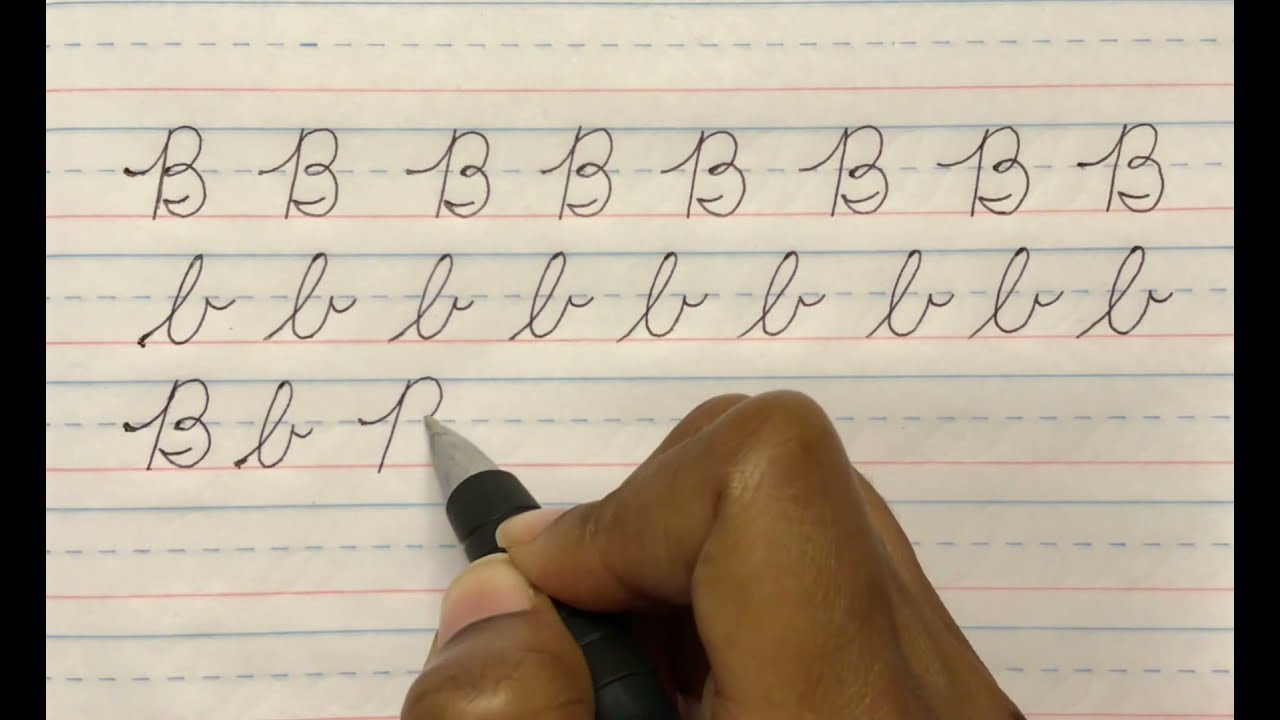 B B B B B B B B
b b b b b b b b b
B b